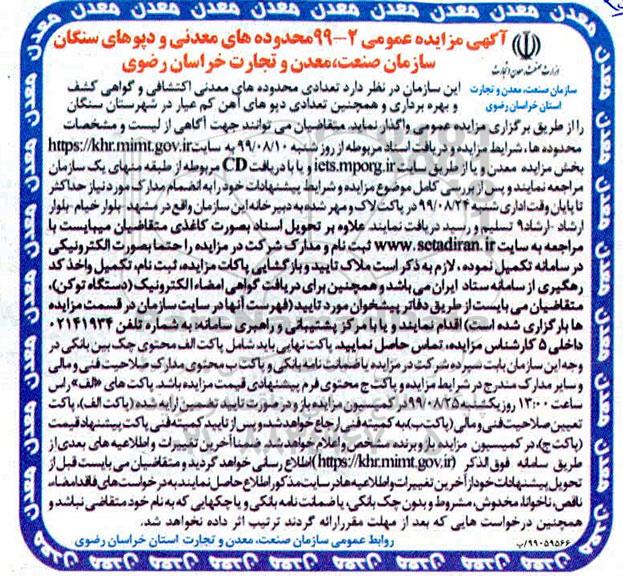 آگهی مزایده عمومی ۲-۹۹ محدوده های معدنی و دپوهای سنگان
سازمان صنعت،معدن و تجارت خراسان رضوی
وزارت صنعت، معدن و تجارت
سازمان صنعت، معدن و تجارت
استان خراسان رضوی
این سازمان در نظر دارد تعدادی محدوده های معدنی اکتشافی و گواهی کشف
و بهره برداری و همچنین تعدادی دپو های آهن کم عیار در شهرستان سنگان
را از طریق برگزاری مزایده عمومی واگذار نماید. متقاضیان می توانند جهت آگاهی از لیست و مشخصات
محدوده ها، شرایط مزایده و دریافت اسناد مربوطه از روز شنبه ۹۹/۰۸/۱۰ به سایت https://khr.mimt.gov.ir
بخش مزایده معدن و یا از طریق سایت iets.mporg.ir و یا با دریافت CD مربوطه از طبقه منهای یک سازمان
مراجعه نمایند و پس از بررسی کامل موضوع مزایده و شرایط پیشنهادات خود را به انضمام مدارک مورد نیاز حداکثر
تا پایان وقت اداری شنبه ۹۹/۰۸/۲۴ در پاکت لاک و مهر شده به دبیرخانه این سازمان واقع در مشهد- بلوار خیام -بلوار
ارشاد -ارشاد۹ تسلیم و رسید دریافت نمایند. علاوه بر تحویل اسناد بصورت کاغذی متقاضیان میبایست با
مراجعه به سایت www.setadiran.ir ثبت نام و مدارک شرکت در مزایده را حتما بصورت الکترونیکی
در سامانه تکمیل نموده . لازم به ذکر است ملاک تایید و بازگشایی پاکات مزایده، ثبت نام، تکمیل واخذ کد
رهگیری از سامانه ستاد ایران می باشد و همچنین برای دریافت گواهی امضاء الکترونیک (دستگاه توکن)،
متقاضیان می بایست از طریق دفاتر پیشخوان مورد تایید (فهرست آنها در سایت سازمان در قسمت مزایده
ها بارگزاری شده است) اقدام نمایند و یا با مرکز پشتیبانی و راهبری سامانه: به شماره تلفن ۰۲۱۴۱۹۳۴
داخلی ۵ کارشناس مزایده، تماس حاصل نمایید. پاکت نهایی باید شامل پاکت الف محتوی چک بین بانکی در
وجه این سازمان بابت سپرده شرکت در مزایده یا ضمانت نامه بانکی و پاکت ب محتوی مدارک صلاحیت فنی و مالی
و سایر مدارک مندرج در شرایط مزایده و پاکت ج محتوی فرم پیشنهادی قیمت مزایده باشد. پاکت های «الف» راس
ساعت ۱۳:۰۰ روز یکشنبه ۹۹/۰۸/۲۵ در کمیسیون مزایده باز و در صورت تایید تضمین ارایه شده (پاکت الف)، پاکت
تعیین صلاحیت فنی و مالی (پاکت ب) به کمیته فنی ارجاع خواهد شد، و پس از تایید کمیته فنی پاکت پیشنهاد قیمت
(پاکت ج)، در کمیسیون مزایده باز و برنده مشخص و اعلام خواهد شد. ضمنا آخرین تغییرات و اطلاعیه های بعدی از
طریق سامانه فوق الذکر (https://khr.mimt.gov.ir) اطلاع رسانی خواهد گردید و متقاضیان می بایست قبل از
تحویل پیشنهادات خود از آخرین تغییرات و اطلاعیه ها در سایت مذکور اطلاع حاصل نمایند به درخواست های فاقد امضاء،
ناقص، ناخوانا، مخدوش، مشروط و بدون چک بانکی، یا ضمانت نامه بانکی و یا چکهایی که به نام خود متقاضی نباشد و
همچنین درخواست هایی که بعد از مهلت مقرر ارائه گردند ترتیب اثر داده نخواهد شد.
روابط عمومی سازمان صنعت، معدن و تجارت استان خراسان رضوی
۹۹۰۵۹۵۶۶/پ